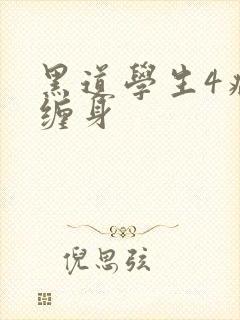 黑道學生4
缠身
倪思弦